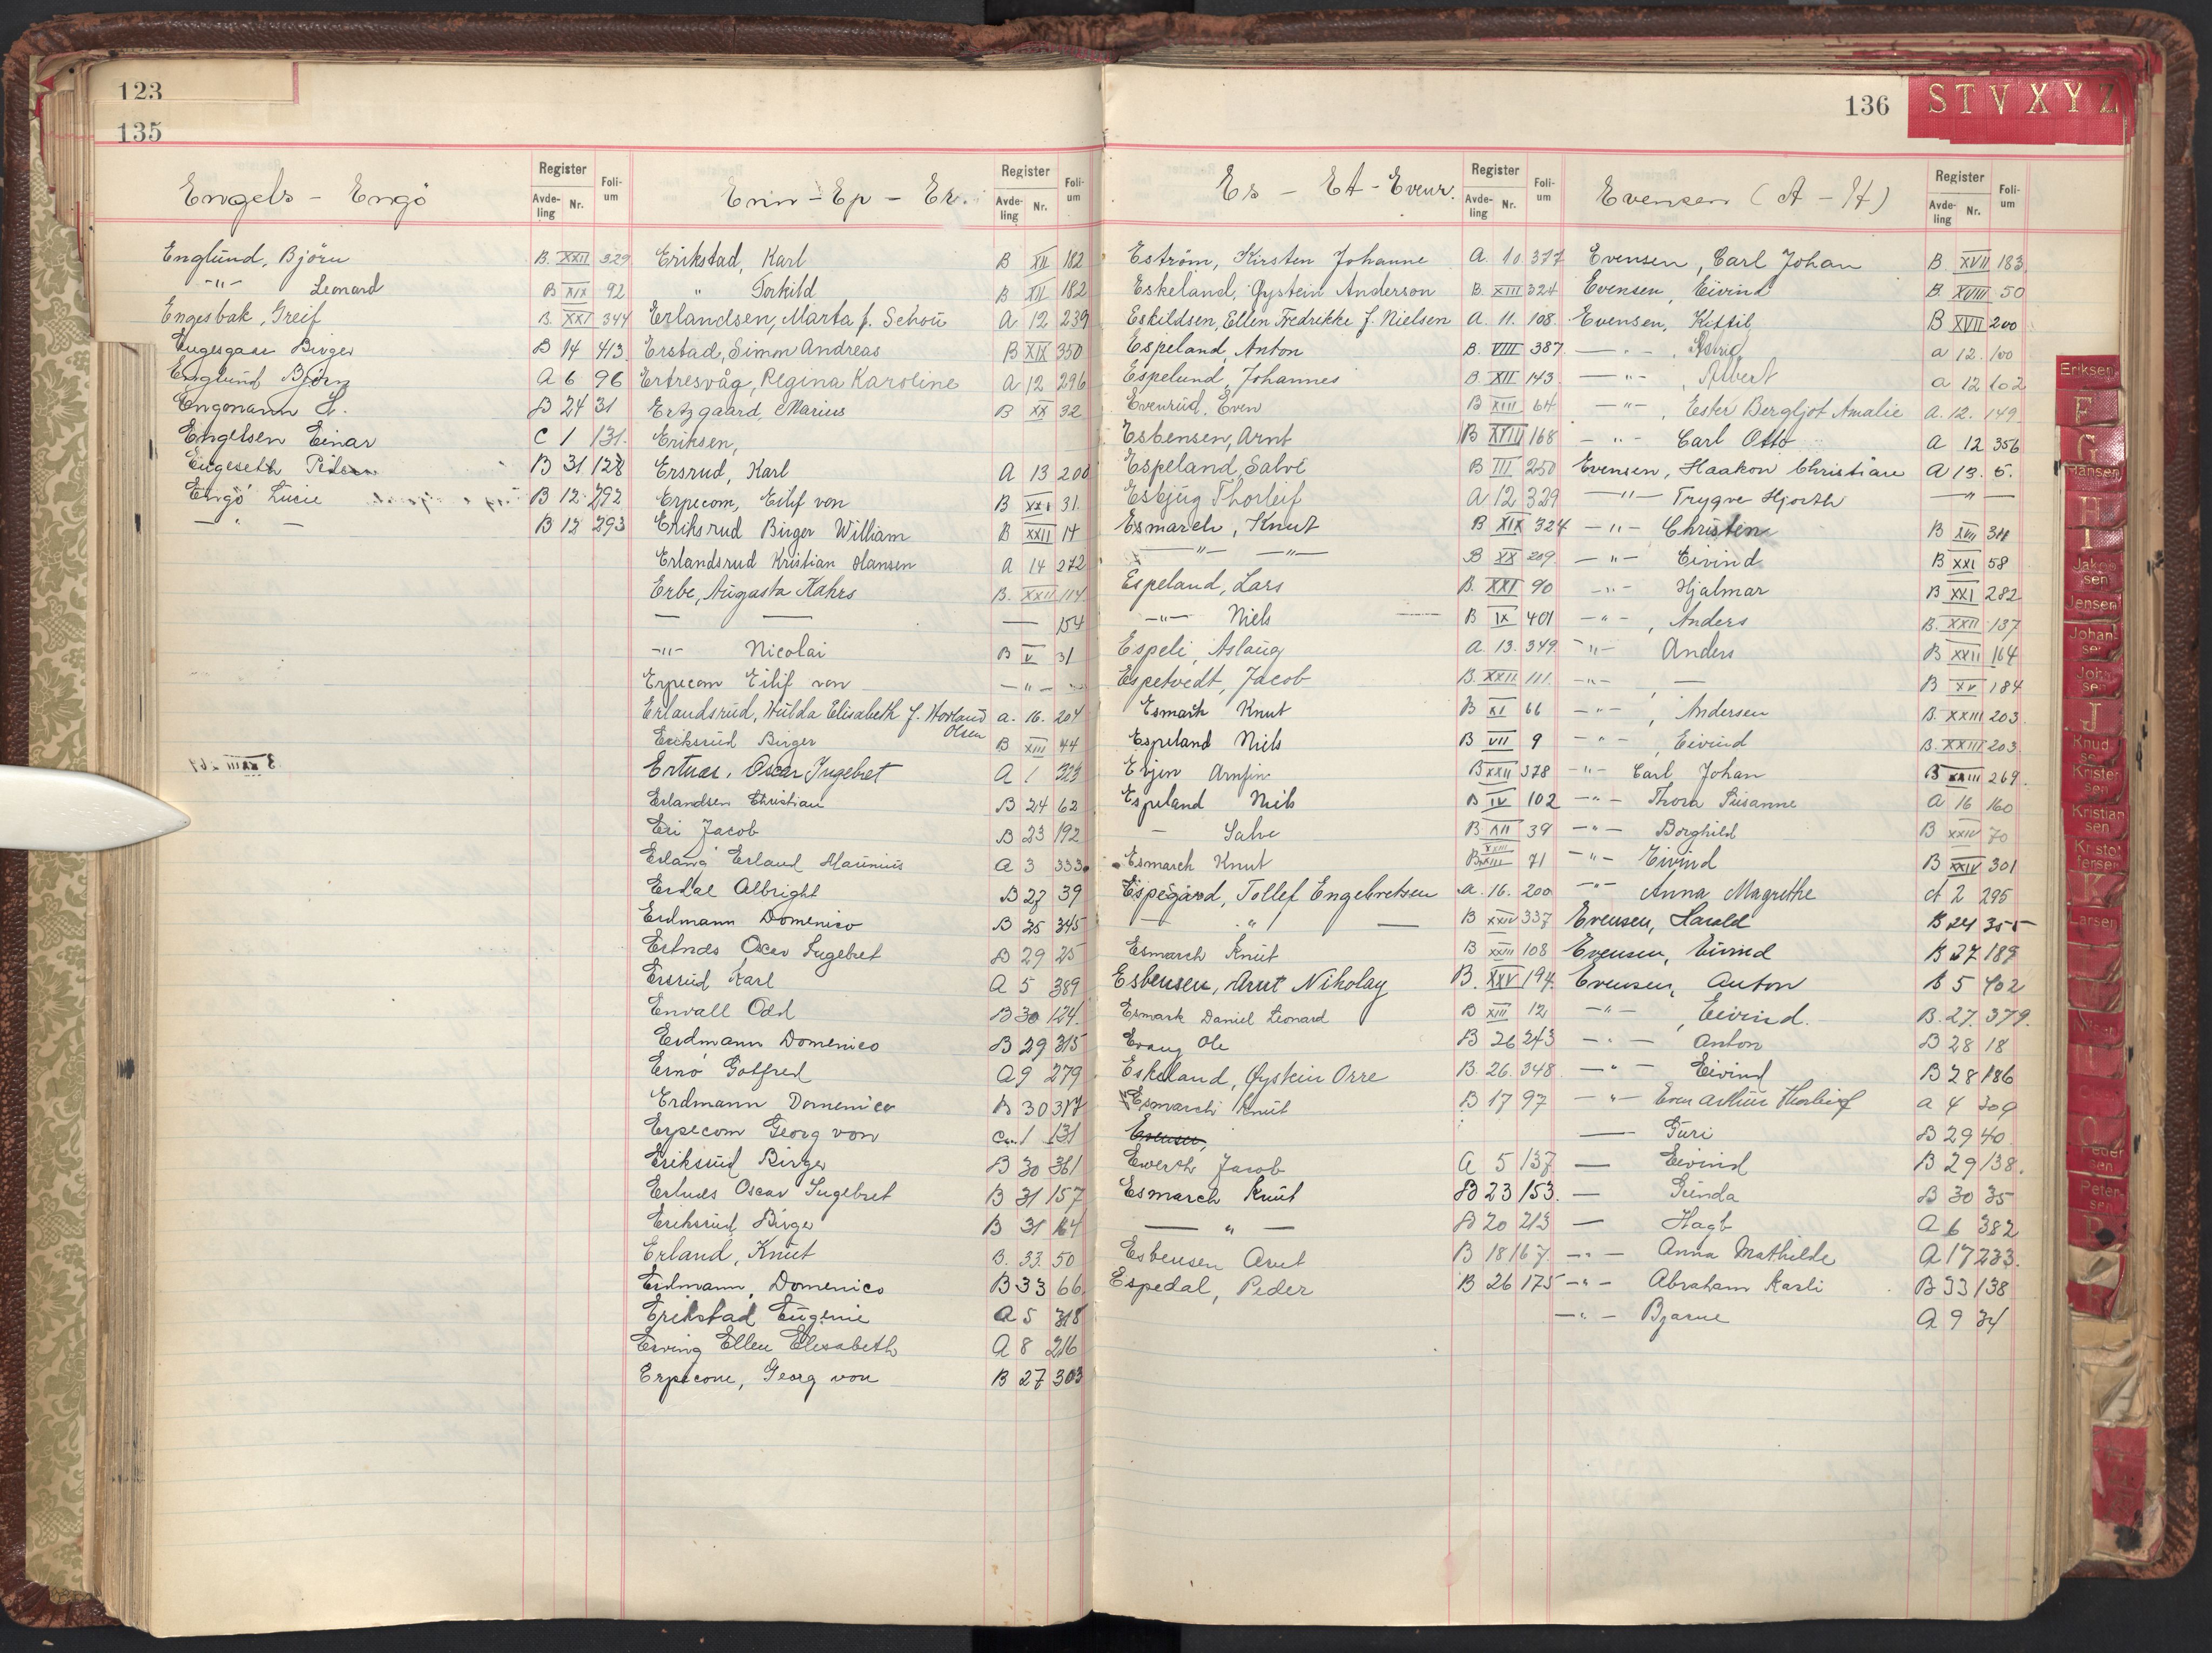 123
135
Engels - Engö
Register
Avde-ling Nr.
Foli-um
Englund, Björn B. XXII 329
-"- Leonard B XIX 92
Engesbak, Greif B. XXI 344
Engesgaar Birger B 14 413
Englund Bjørn A 6 96
Engmann H. B 24 31
Engelsen Einar C 1 131.
Engeseth Peder B 31 128
Engö Lucie B 12 292
- " - B 12 293
Enn - Ep - Er.
Register
Avde-ling Nr.
Foli-um
Erikstad, Karl B XII 182
" Torkild B XII 182
Erlandsen, Marta f. Schou A 12 239
Erstad, Simon Andreas B XIX 350
Ertresvåg, Regina Karoline A 12 296
Ertzgaard, Marius B XX 32
Eriksen,
Ersrud, Karl A 13 200
Erpecom, Eilif von B XXI 31.
Eriksrud Birger William B XXII 14
Erlandsrud Kristian Hansen A 14 272
Erbe, Augasta Kahrs B. XXII 114
— — — 154
-"- Nicolai B V 31
Erpecom Eilif von - " -
Erlandsrud, Hulda Elisabeth f. Hovland Olsen a. 16. 204
Eriksrud Birger B XIII 44
Ertnæs, Oscar Ingebret A 1 323
Erlandsen Christian B 24 62
Eri Jacob B 23 192
Erland Maunius A 3 333
Erdal Albright B 27 39
Erdmann Domenico B 25 345
Ertnæs Oscar Ingebret B 29 25
Ersrud Karl A 5 389
Envall Odd B 30 124.
Erdmann Domenico B 29 315
Ernö Gotfred A 9 279
Erdmann Domenico B 30 317
Erpecom Georg von C 1 131
Eriksrud Birger B 30 361
Ertnæs Oscar Ingebret B 31 157
Eriksrud Birger B 31 164
Erland, Knut B. 33. 50
Erdmann, Domenico B 33 66
Erikstad Eugenie A 5 318
Erving Ellen Elisabeth A 8 216
Erpecom, Georg von B 27 303
136
S T V X Y Z
Es - Et - Evenr.
Register
Avde-ling Nr.
Foli-um
Eström, Kirsten Johanne A. 10 377
Eskeland, Øystein Anderson B. XIII 324
Eskildsen, Ellen Fredrikke f. Nielsen A. 11. 108.
Espeland, Anton B. VIII 387
Espelund, Johannes B. XII 143
Evenrud, Even B XIII 64
Esbensen, Arnt B XVIII 168
Espeland, Salve B III 250
Esbjug Thorleif A 12 329
Esmarch, Knut B XIX 324
-"- -"- B XX 209
Espeland, Lars B. XXI 90
-"- Niels B IX 401
Espeli, Aslaug A. 13. 349.
Espetvedt, Jacob B. XXII 111.
Esmark Knut B XI 66
Espeland Niels B VII 9
Arnfin B XXII 378
Espeland Niels B IV 102
- Salve B XII 39
Esmarch Knut B XXIII 71
Espegård, Tollef Engebretsen A. 16. 200
- " - B XXIV 337
Esmarch Knut B XXIII 108
Esbensen, Arnt Nikolay B. XXV 194.
Esmark Daniel Leonard B XIII 12
Evang Ole B 26 243
Eskeland, Øystein Orre B. 26. 348
Esmarch Knut B 17 97
Evensen,
Ewerth Jacob A 5 137
Esmarch Knut B 23 153.
— " — B 20 213
Esbensen Arnt B 18 167
Espedal, Peder B 26 175
Evensen (A - H)
Register
Avde-ling Nr.
Foli-um
Evensen, Carl Johan B. XVII 183
Evensen, Eivind B. XVIII 50
Evensen, Kittil B XVII 200
— " — , Astrid a 12. 100
— " — , Albert a 12 102
— " — , Ester Bergljot Amalie A. 12. 149.
- " - Carl Otto A 12 356
Evensen, Haakon Christian A 13. 5.
— " — Trygve Hjorth — " —
- " - Christen B XVII 311
- " - Eivind B XXI 58
- " - Hjalmar B XXI 282
- " - , Anders B. XXII 137
- " - Anders B XXII 164
- " - — B XV 184
- " - , Andersen B. XXIII 203.
- " - , Eivind B. XXIII 203.
- " - Carl Johan B XXIII 269.
- " - Thora Susanne A 16 160
- " - Borghild B XXIV 70
- " - Eivind B XXIV 301
- " - Anna Magrethe A 2 295
Evensen, Harald B 24 355
Evensen, Eivind B 27 189
Evensen, Anton B 5 402
- " - , Eivind. B. 27. 379.
- " - Anton B 28 18
- " - Eivind B 28 186
- " - Even Arthur Thorleif A 4 309
— Guri B 29 40
— Eivind B 29 138.
— Gunda B 30 35
— Hagb A 6 382
- " - Anna Mathilde A 17 233.
- " - Abraham Karli B 33 138
- " - Bjarne A 9 34
Eriksen
F
G
Hansen
H
I
Jakobsen
Jensen
Johansen
Johnsen
J
Knudsen
Kristensen
Kristiansen
Kristoffersen
K
Larsen
Nilsen
O
Pedersen
Petersen